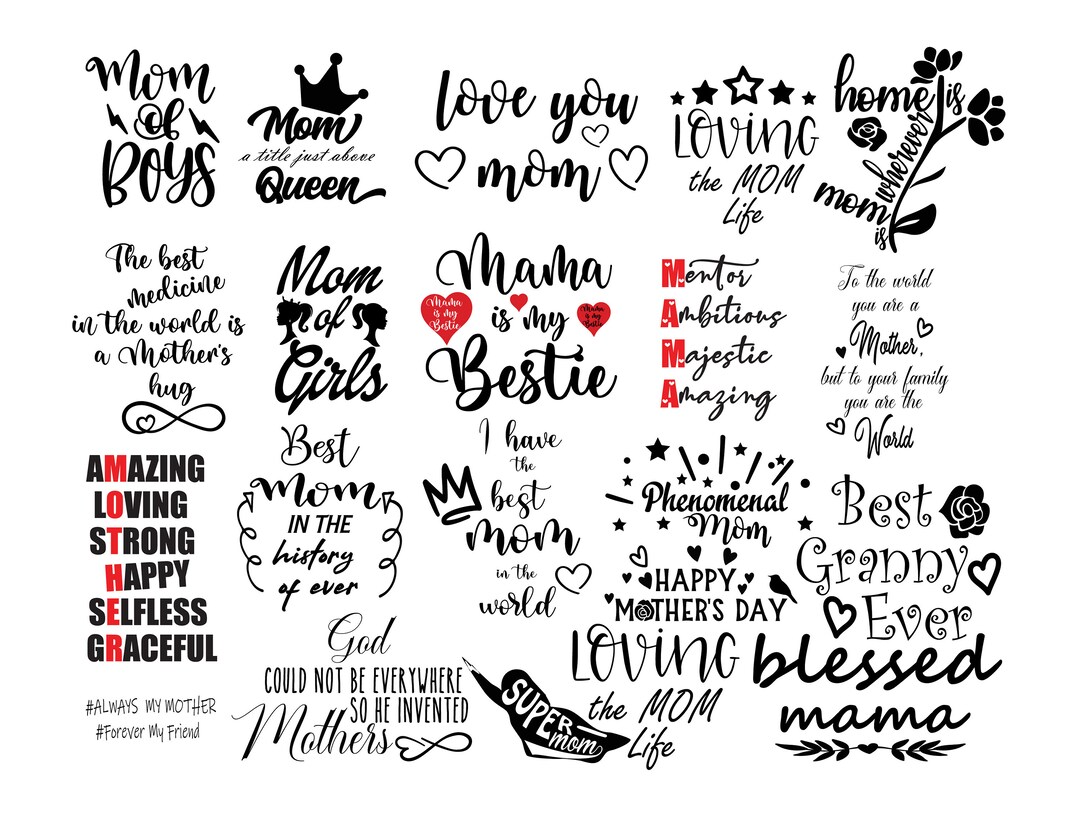 Mom
of
BOYS
Mom
a title just above
Queen
love you
mom
LOVING
the MOM
Life
home is
wherever
mom
is
The best
medicine
in the world is
a Mother's
hug
Mom
of
Girls
Mama
is my
Bestie
Mama
is my
Bestie
Mama
is my
Bestie
Mentor
Ambitious
Majestic
Amazing
To the world
you are a
Mother,
but to your family
you are the
World
AMAZING
LOVING
STRONG
HAPPY
SELFLESS
GRACEFUL
Best
Mom
IN THE
history
of ever
I have
the
best
mom
in the
world
Phenomenal
Mom
HAPPY
MOTHER'S DAY
Best
Granny
Ever
#ALWAYS MY MOTHER
#Forever My Friend
God
COULD NOT BE EVERYWHERE
SO HE INVENTED
Mothers
SUPER
mom
LOVING
the MOM
Life
blessed
mama